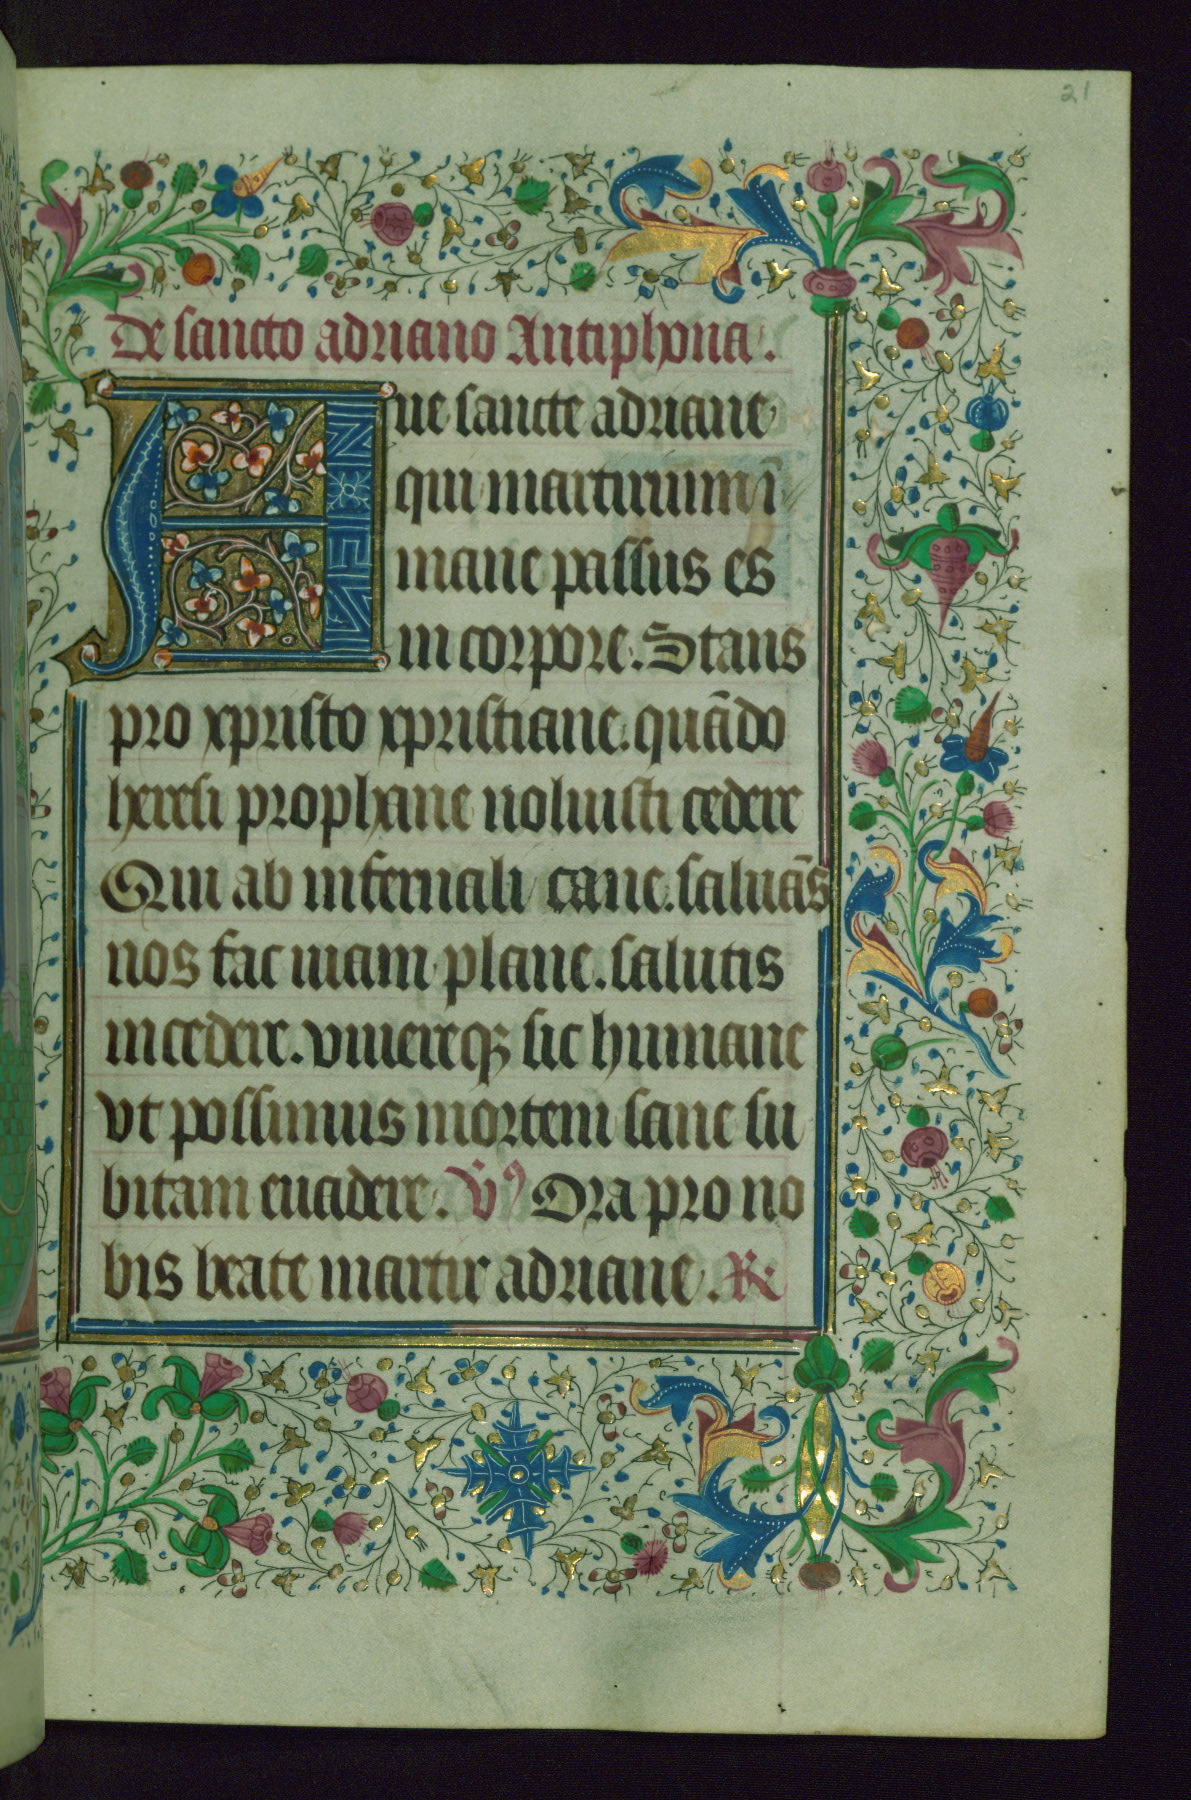 21
De sancto adriano Antiphona.
Aue sancte adriane
qui martirium ī
mane passus es
in corpore. Stans
pro xpristo xpristiane. quādo
heresi prophane noluisti cedere
Qui ab infernali cane. saluās
nos fac uiam plane. salutis
incedere. viuereqꝫ sic humane
vt possimus mortem sane su
bitam euadere. V̓ Ora pro no
bis beate martir adriane. R̓